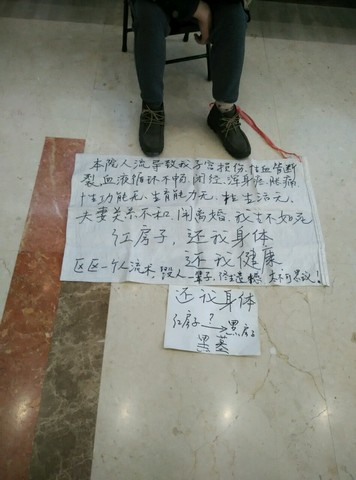 本院人流导致我子宫损伤、粘血管断
裂,血液循环不畅,闭经,浑身疼,胀痛
性功能无、生育能力无、性生活无、
夫妻关系不和,闹离婚,我生不如死
红房子,还我身体
还我健康
区区一个人流术,毁人一辈子,终生遗憾,太不可思议!
还我身体
红房子?→黑房子
坟墓